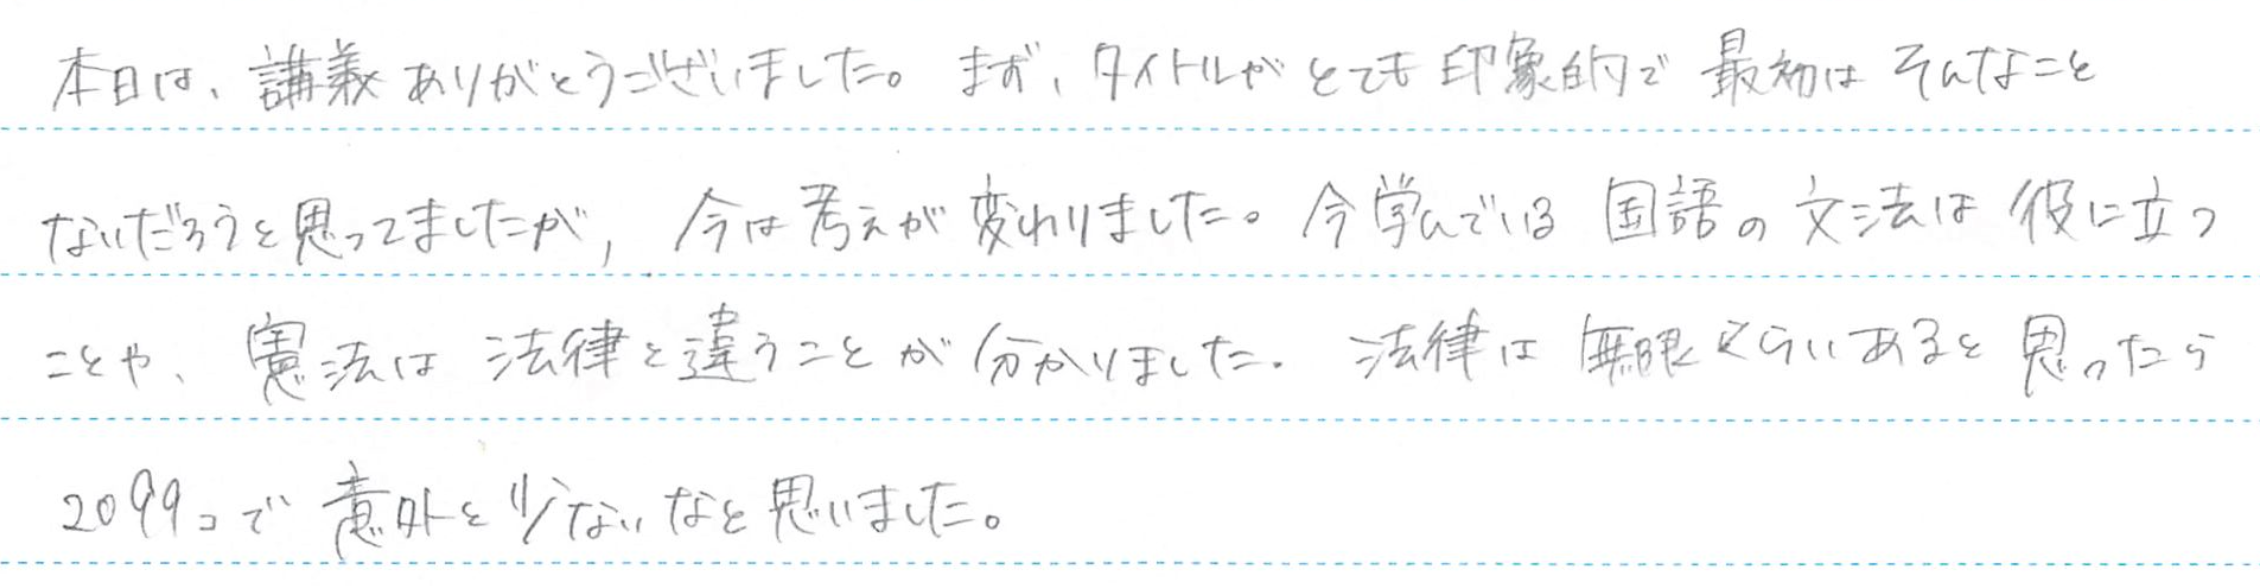 本日は、講義ありがとうございました。まず、タイトルがとても印象的で最初はそんなこと
ないだろうと思ってましたが, 今は考えが変わりました。今学んでいる国語の文法は役に立つ
ことや、憲法は法律と違うことが分かりました。法律は無限くらいあると思ったら
2099コで意外と少ないなと思いました。